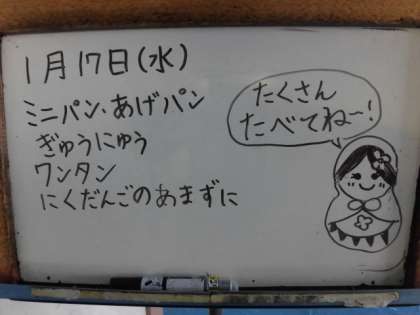 1月17日(水)
ミニパン・あげパン
ぎゅうにゅう
ワンタン
にくだんごのあまずに
たくさん
たべてねー!